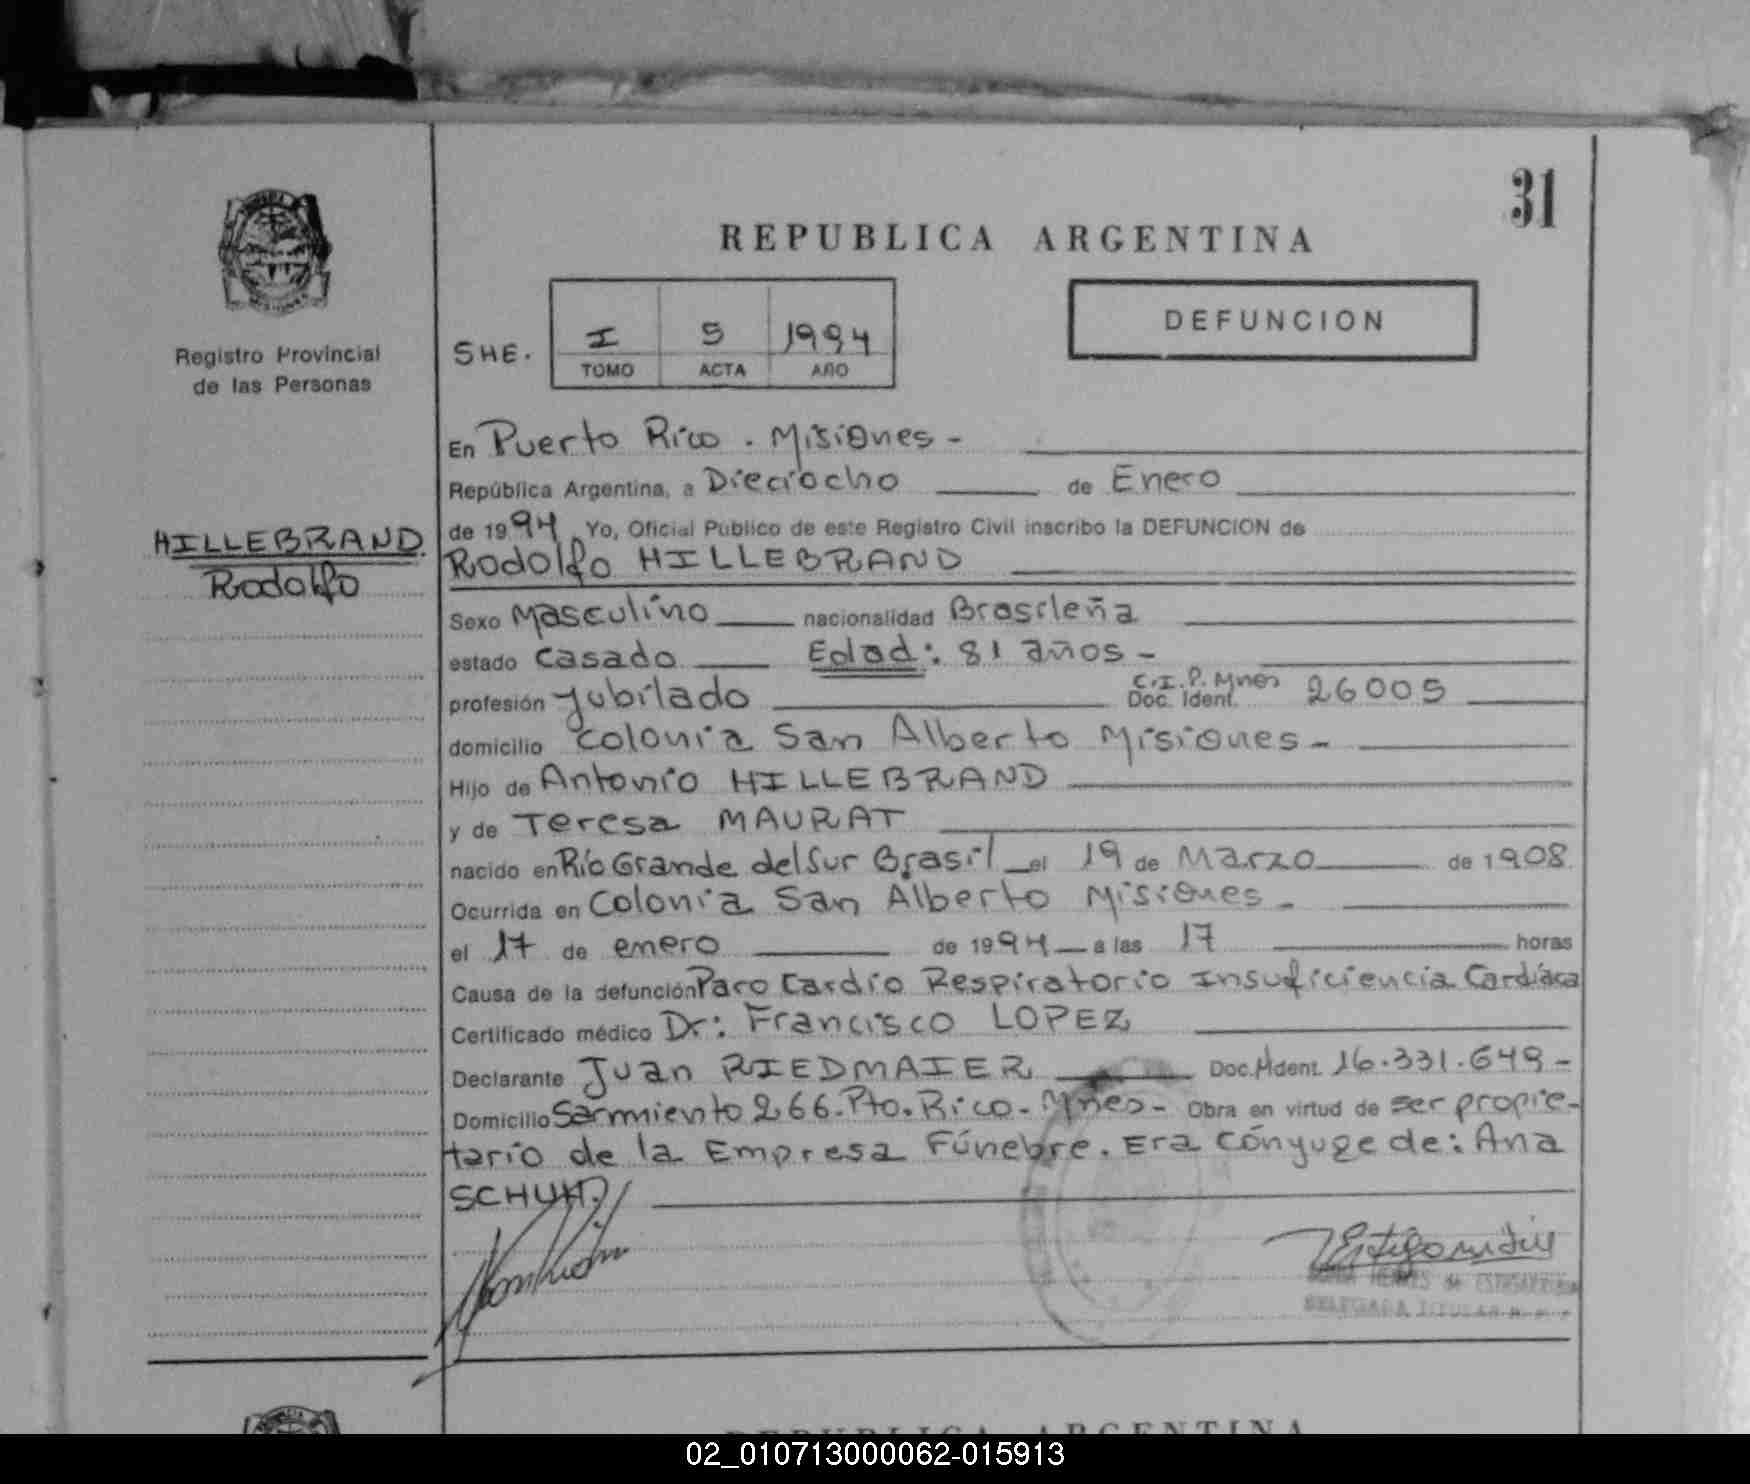 31
REPUBLICA ARGENTINA
DEFUNCION
SHE. I 5 1994
TOMO ACTA AÑO
Registro Provincial
de las Personas
HILLEBRAND
Rodolfo
En Puerto Rico. Misiones -
República Argentina, a Dieciocho de Enero
de 1994, Yo, Oficial Público de este Registro Civil inscribo la DEFUNCION de
Rodolfo HILLEBRAND
Sexo Masculino nacionalidad Brasileña
estado casado Edad: 81 años -
profesión jubilado C.I.P. Mnes Doc. Ident. 26005
domicilio colonia San Alberto Misiones -
Hijo de Antonio HILLEBRAND
y de Teresa MAURAT
nacido en Río Grande del Sur Brasil el 19 de Marzo de 1908
Ocurrida en Colonia San Alberto Misiones -
el 17 de enero de 1994 a las 17 horas
Causa de la defunción Paro Cardio Respiratorio Insuficiencia Cardíaca
Certificado médico Dr: Francisco LOPEZ
Declarante Juan RIEDMAIER Doc. Ident. 16.331.649 -
Domicilio Sarmiento 266. Pto. Rico - Mnes - Obra en virtud de ser propie-
tario de la Empresa Fúnebre. Era Cónyuge de: Ana
SCHUH.
REPUBLICA ARGENTINA
02_010713000062-015913